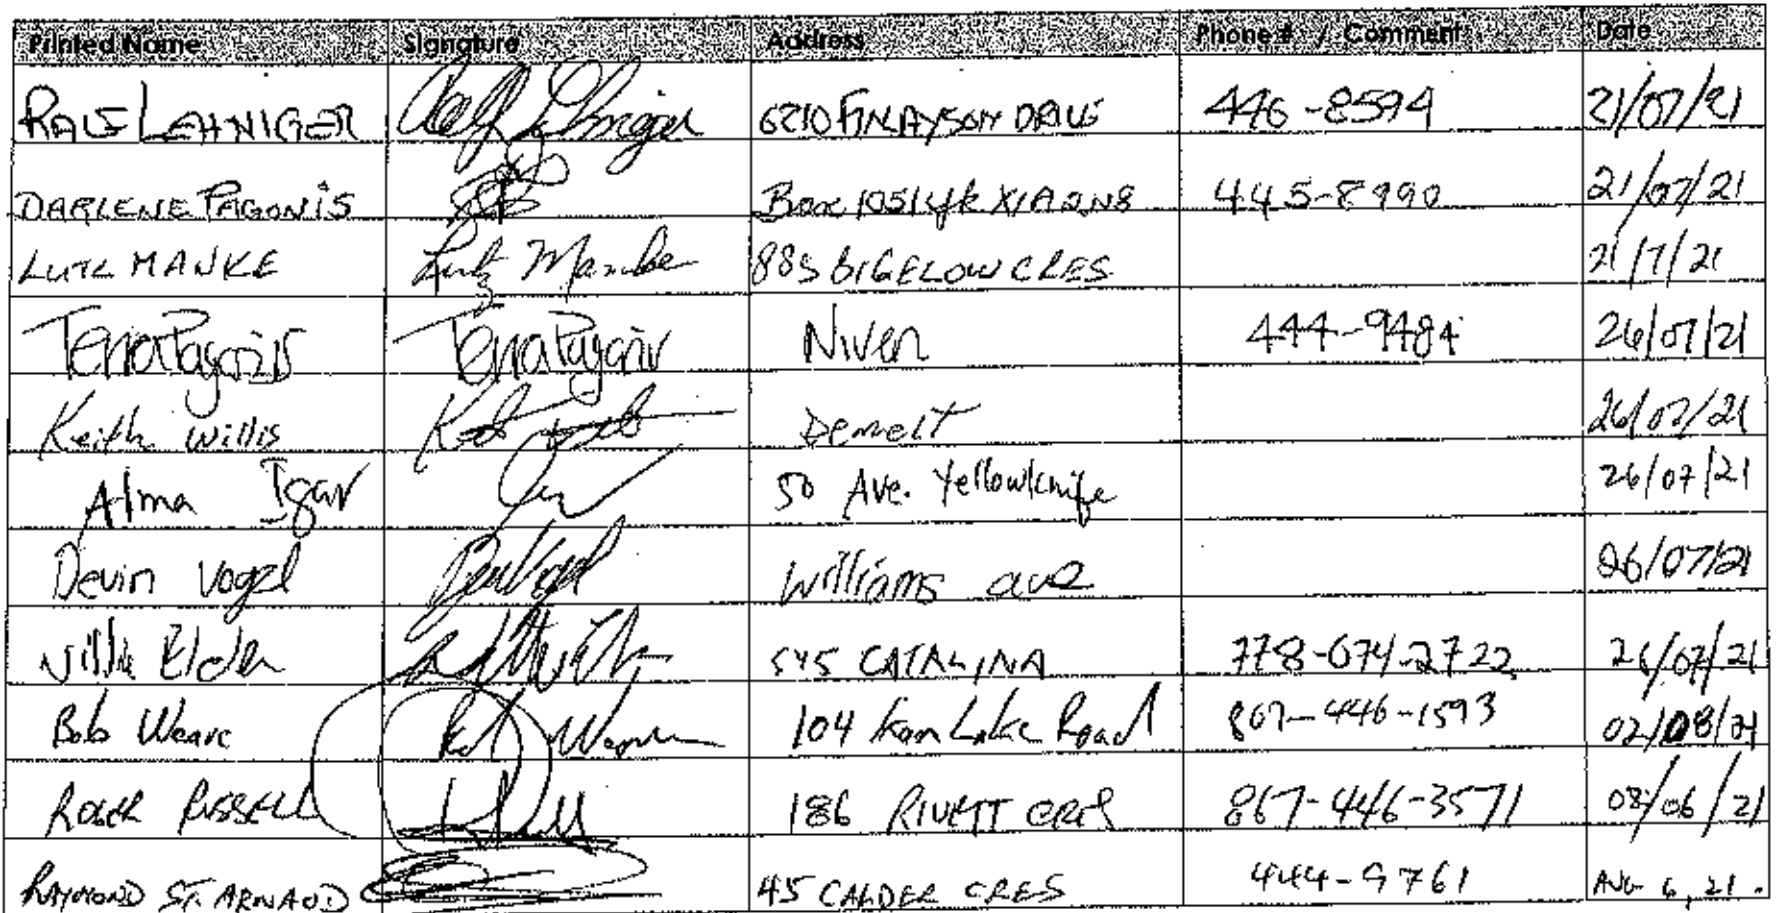 Printed Name Signature Address Phone # / Comment Date
RALF LEHNIGER Ralf Lehniger 6210 FINLAYSON DRIVE 446-8594 21/07/21
DARLENE PAGONIS Box 1051 YK X1A 2N8 445-8990 21/07/21
LUTZ MANKE Lutz Manke 885 BIGELOW CRES 21/7/21
Terra Pagonis Terra Pagonis Niven 444-9484 26/07/21
Keith Willis Demelt 26/07/21
Alma Igar 50 Ave. Yellowknife 26/07/21
Devin Vogel Williams ave 26/07/21
Elder 545 CATALINA 778-674-2722 26/07/21
Bob Weare 104 Kam Lake Road 867-446-1593 02/08/21
ROGER RUSSELL 186 RIVETT CRES 867-446-3571 08/06/21
RAYMOND ST. ARNAUD 45 CALDER CRES 444-9761 AUG 6, 21.